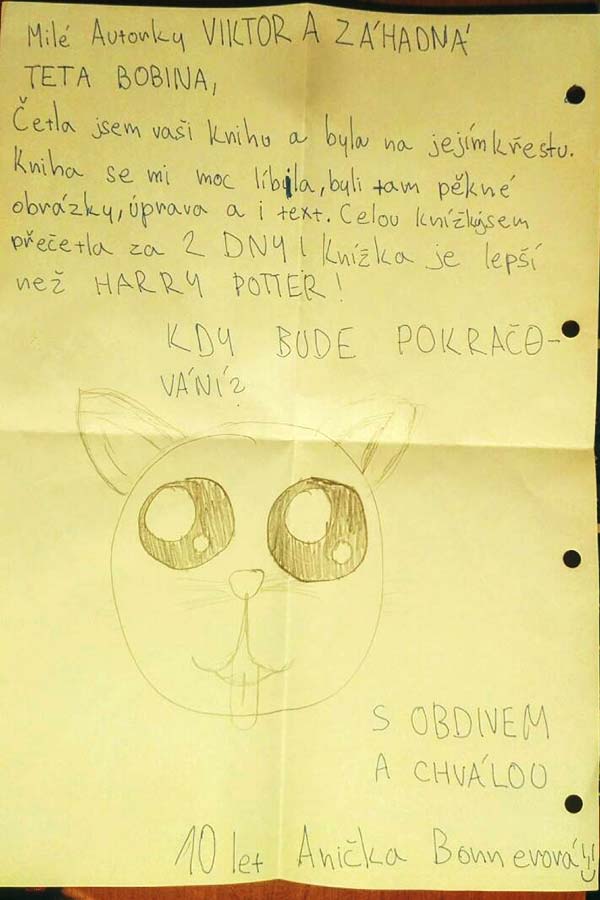 Milé Autorky VIKTOR A ZÁHADNÁ
TETA BOBINA,
Četla jsem vaši knihu a byla na jejím křestu.
Kniha se mi moc líbila, byli tam pěkné
obrázky, úprava a i text. Celou knížkujsem
přečetla za 2 DNY! Knížka je lepší
než HARRY POTTER!
KDY BUDE POKRAČO-
VÁNÍ?
S OBDIVEM
A CHVÁLOU
10 let Anička Bonnerová